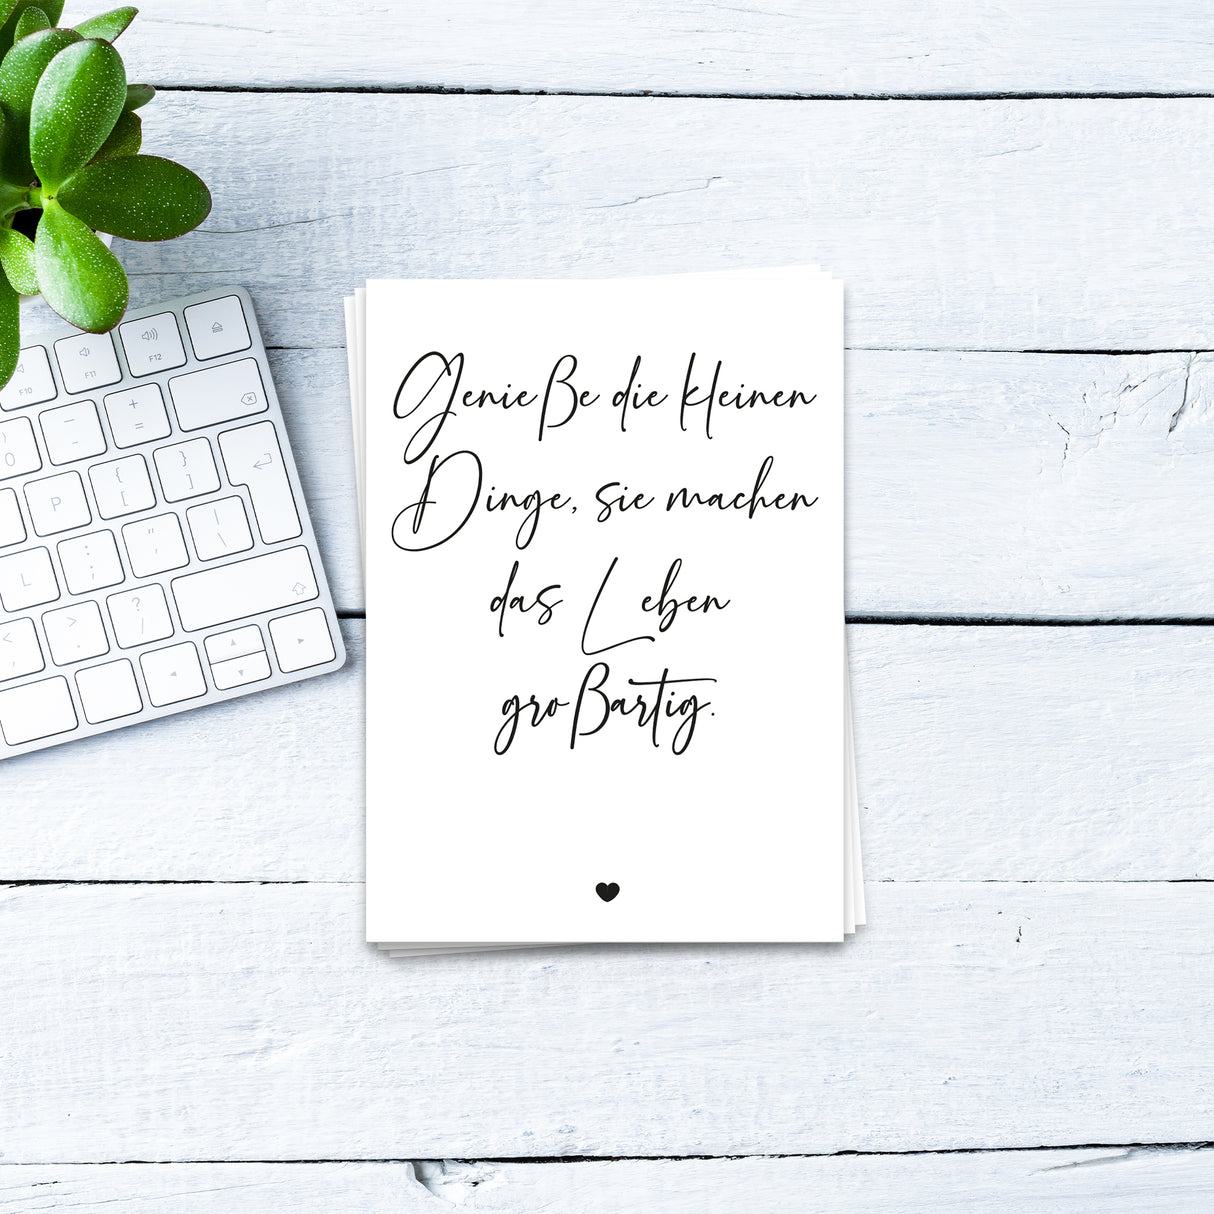 Genieße die kleinen
Dinge, sie machen
das Leben
großartig.
F10
F11
F12
+
=
0
P
{
[
}
]
L
:
;
"
,
|
\
<
,
>
.
?
/